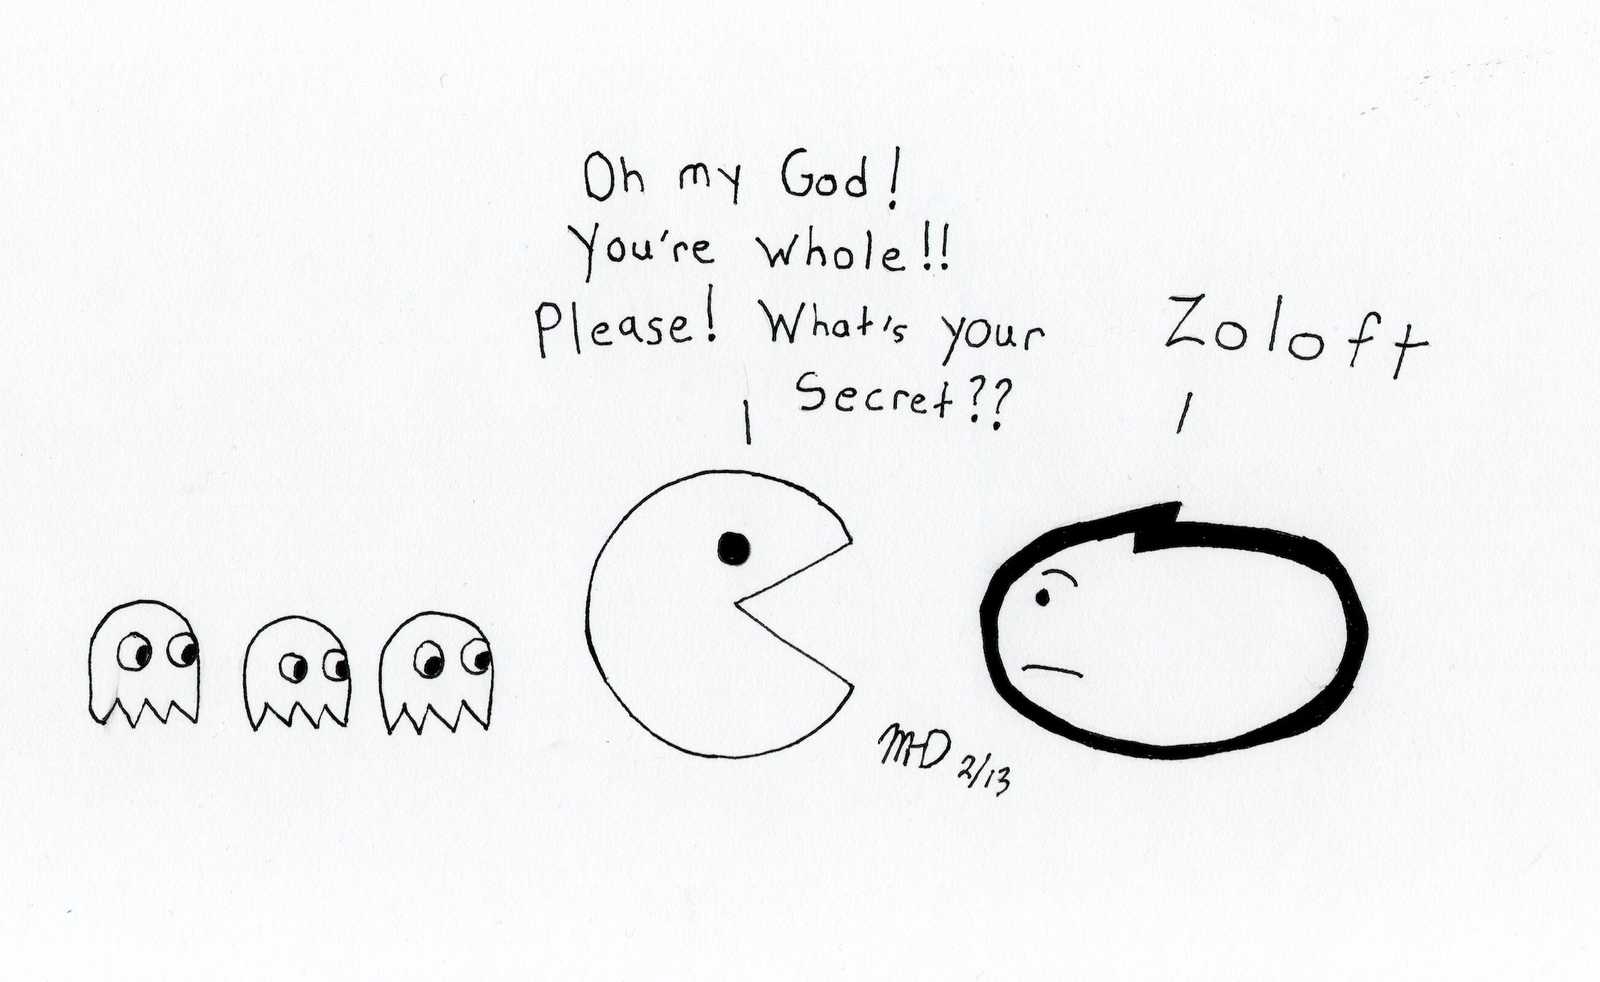 Oh my God!
You're whole!!
Please! What's your
Secret??
Zoloft
M-D 2/13